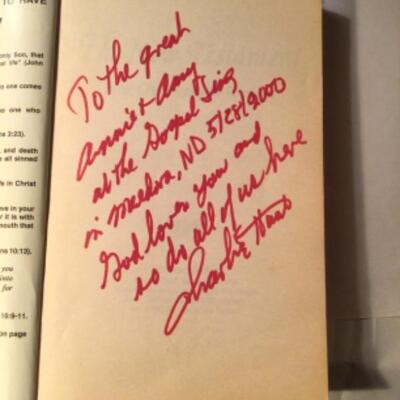 TO HAVE
only Son, that
al life" (John
o one comes
o one who
ns 2:23).
and death
e all sinned
fe in Christ
ve in your
r it is with
mouth that
ns 10:13).
you
into
for
10:9-11.
on page
To the great
Annie & Amy
at the Gospel Sing
in Medora, ND 5/28/2000
God loves you and
so do all of us here
Charlie